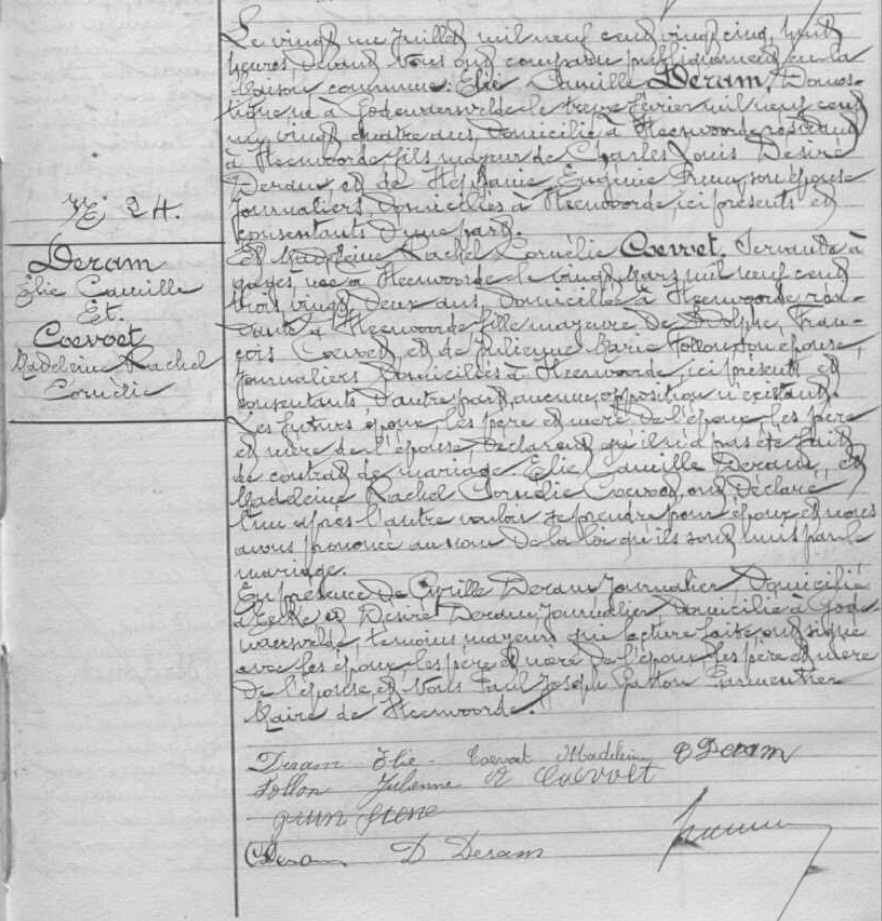 N° 24.
Deram
Elie Camille
Et.
Coevoet
Madeleine Rachel
Cornélie
Le vingt un Juillet mil neuf cent vingt cinq, huit
heures, devant Nous ont comparu publiquement en la
Maison commune: Elie Camille Deram, Domes-
tique, né à Godewaersvelde le treize février mil neuf cent
un, vingt quatre ans, domicilié à Steenvoorde, résidant
à Steenvoorde fils majeur de Charles Louis Désiré
Deram, et de Stéphanie Eugénie son épouse
Journaliers, domiciliés à Steenvoorde, ici présents et
consentants d'une part.
Et Madeleine Rachel Cornélie Coevoet, Servante à
gages, née à Steenvoorde le vingt Mars mil neuf cent
trois, vingt deux ans, domiciliée à Steenvoorde, rési-
dante à Steenvoorde fille majeure de Adolphe, Fran-
çois Coevoet, et de Julienne Marie Follon, son épouse,
Journaliers domiciliés à Steenvoorde, ici présents et
consentants d'autre part, aucune opposition n'existant.
Les futurs époux, les père et mère de l'époux, les père
et mère de l'épouse, déclarent qu'il n'a pas été fait
de contrat de mariage. Elie Camille Deram, et
Madeleine Rachel Cornélie Coevoet, ont déclaré
l'un après l'autre vouloir se prendre pour époux et nous
avons prononcé au nom de la loi qu'ils sont unis par le
mariage.
En présence de Cyrille Deram, Journalier, domicilié
à Eecke et Désiré Deram, Journalier, domicilié à Gode-
waersvelde, témoins majeurs qui lecture faite, ont signé
avec les époux, les père et mère de l'époux, les père et mère
de l'épouse et Nous Paul Joseph Gaston
Maire de Steenvoorde.
Deram Elie. Coevoet Madeleine Deram
Follon Julienne A Coevoet
Deram D Deram